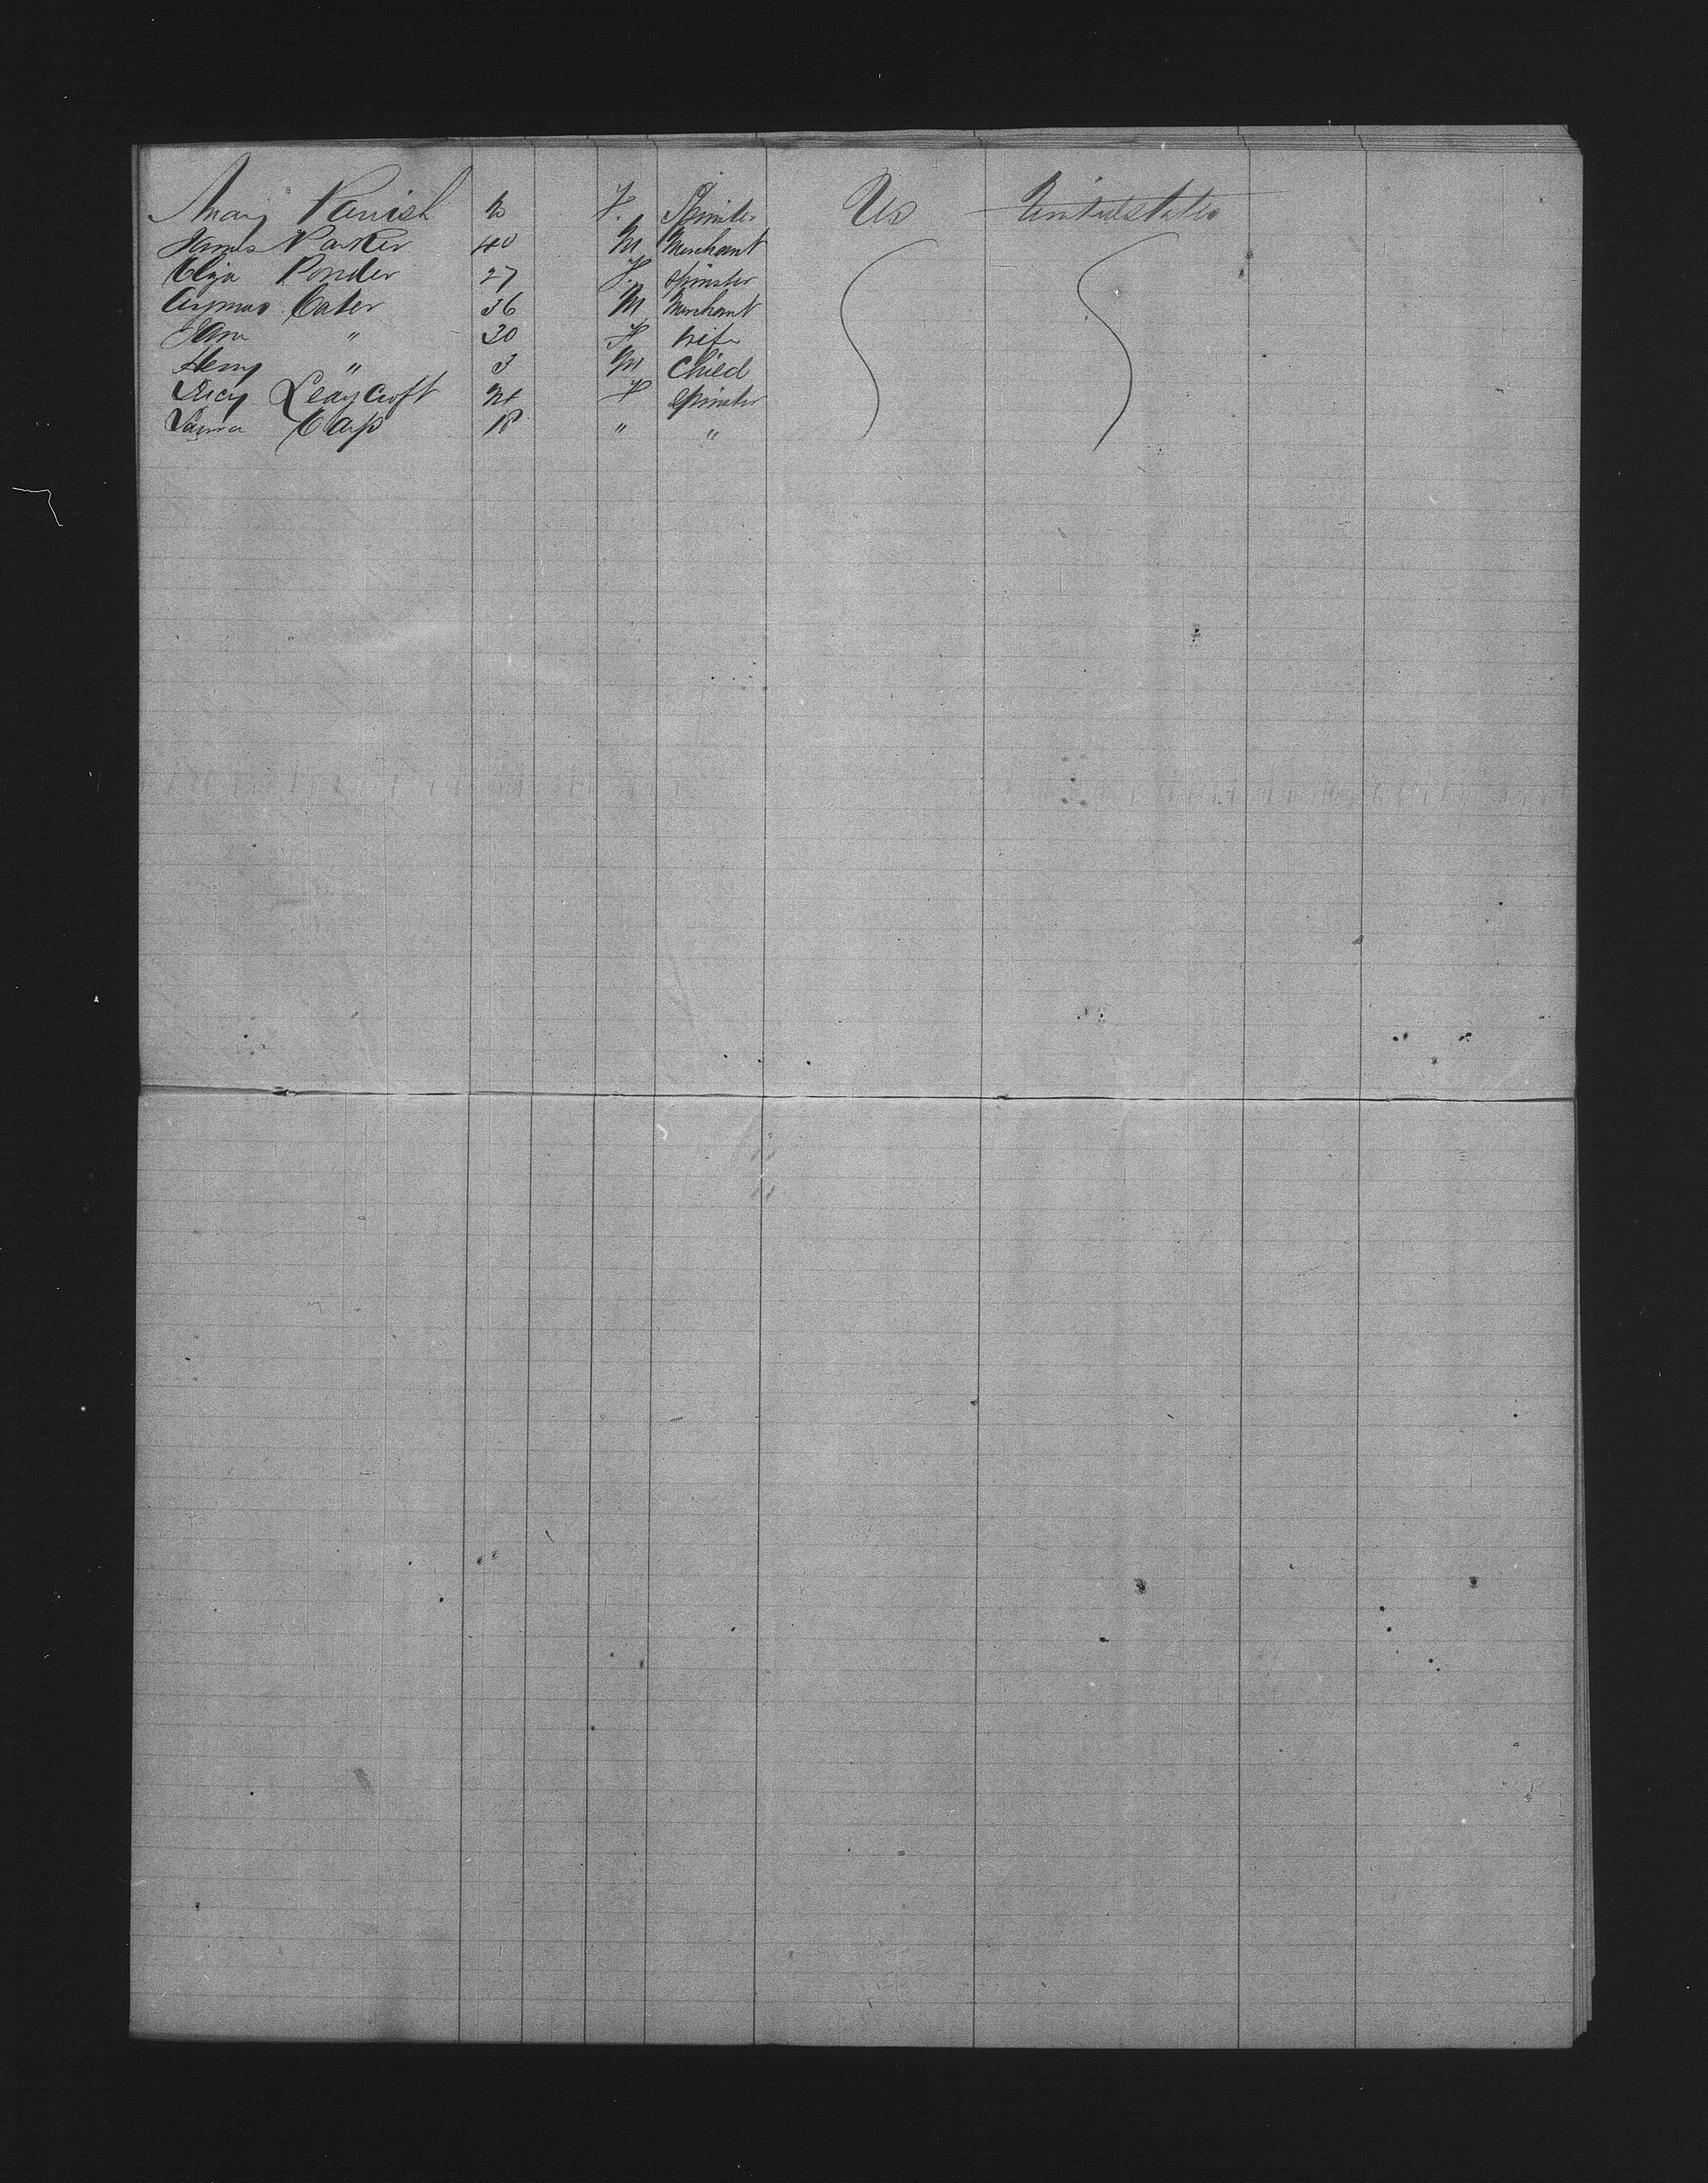 Mary Parrish 20 F. Spinster US United States
James Parker 40 M Merchant
Eliza Ponder 27 F. Spinster
Cater 36 M Merchant
Jane " 30 F wife
Henry " 3 M Child
Lucy Leaycroft 24 F Spinster
Laura 18 " "